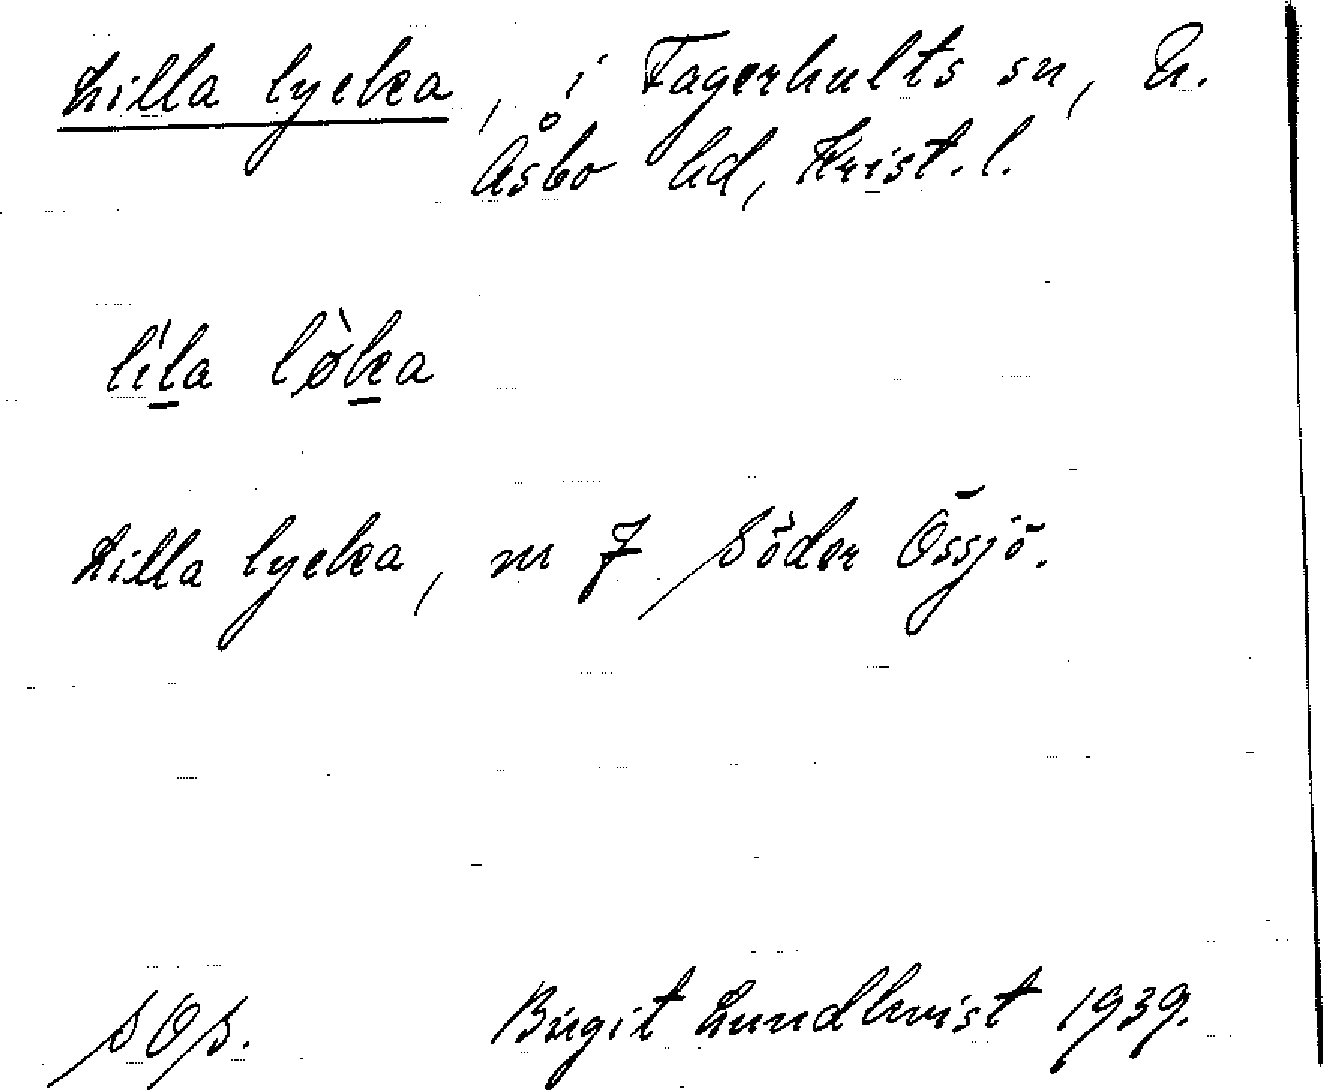 Lilla lycka, i Fagerhults sn, N.
Åsbo hd, Krist. l.
lìl̲a lø̀k̲a
Lilla lycka, nr 7 Söder Össjö.
SOS.
Birgit Lundkvist 1939.